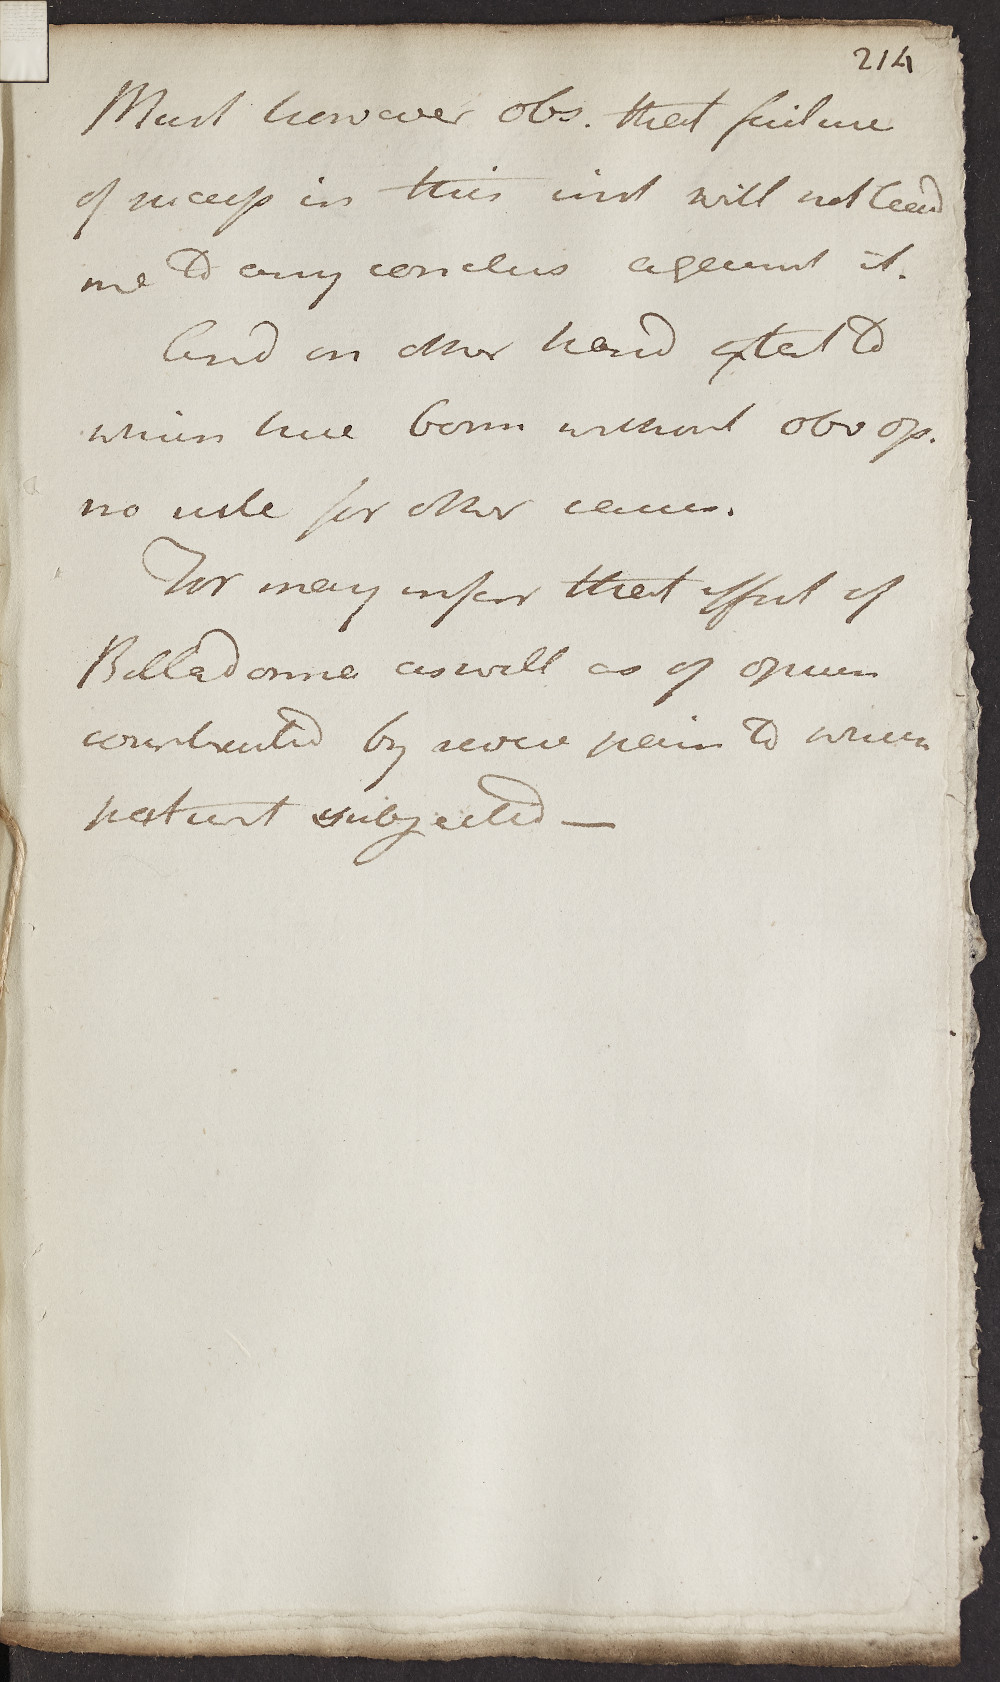 214
Must however obs. that failure
of success in this inst will not lead
me to any conclus against it.
And on other hand extent to
which here born without obv op.
no rule for other cases.
For may infer that effect of
Belladonna as well as of opium
counteracted by severe pain to which
patient subjected —